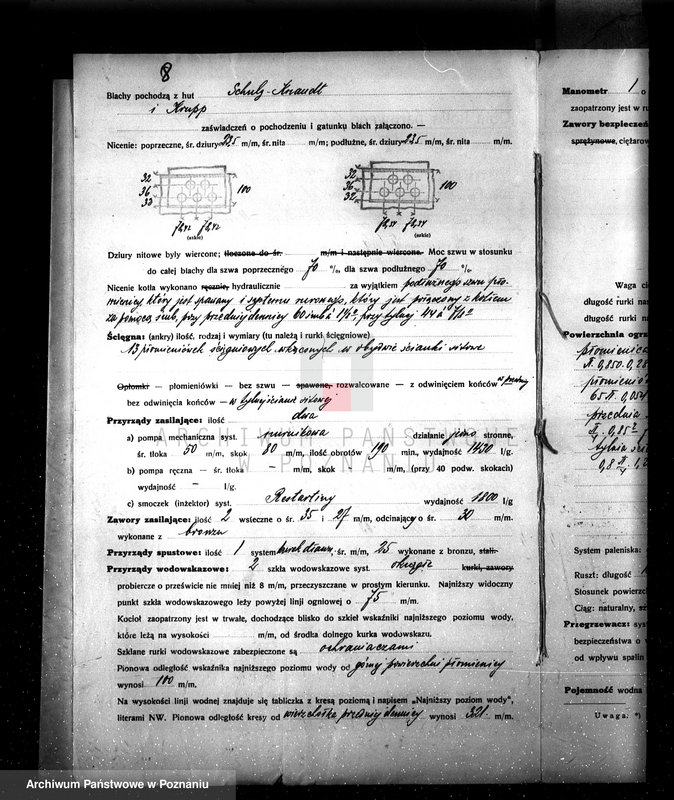 8
Blachy pochodzą z hut Schulz-Knaudt
i Krupp
zaświadczeń o pochodzeniu i gatunku blach załączono. —
Nicenie: poprzeczne, śr. dziury 23,5 m/m, śr. nita m/m; podłużne, śr. dziury 23,5 m/m, śr. nita m/m.
32 36 33 100
32 36 32 100
(szkic) (szkic)
Dziury nitowe były wiercone; tłoczone do śr. m/m i następnie wiercone. Moc szwu w stosunku
do całej blachy dla szwa poprzecznego 70 %, dla szwa podłużnego 70 %.
Nicenie kotła wykonano ręcznie, hydraulicznie za wyjątkiem podłużnego szwu pło-
mienicy który jest spawany i systemu rurowego, który jest połączony z kotłem
za pomocą śrub, przy przedniej dennicy 60 śrub à 1 1/8", przy tylnej 44 à 7/8"
Ścięgna: (ankry) ilość, rodzaj i wymiary (tu należą i rurki ścięgniowe)
13 płomieniówek ścięgniowych wkręconych w obydwie ścianki sitowe
Opłomki — płomieniówki — bez szwu — spawane, rozwalcowane — z odwinięciem końców w przedniej
bez odwinięcia końców — w tylnej ścianie sitowej
Przyrządy zasilające: ilość dwa
a) pompa mechaniczna syst. nurnikowa działanie jedno stronne,
śr. tłoka 50 m/m, skok 80 m/m, ilość obrotów 190 min., wydajność 1430 l/g.
b) pompa ręczna — śr. tłoka – m/m, skok m/m, (przy 40 podw. skokach)
wydajność – l/g.
c) smoczek (inżektor) syst. Restarting wydajność 1800 l/g
Zawory zasilające: ilość 2 wsteczne o śr. 35 i 27 m/m, odcinający o śr. 30 m/m.
wykonane z bronzu
Przyrządy spustowe: ilość 1 system śr. m/m, 25 wykonane z bronzu, stali.
Przyrządy wodowskazowe: 2 szkła wodowskazowe syst. okrągłe kurki, zawory
probiercze o prześwicie nie mniej niż 8 m/m, przeczyszczane w prostym kierunku. Najniższy widoczny
punkt szkła wodowskazowego leży powyżej linji ogniowej o 75 m/m.
Kocioł zaopatrzony jest w trwałe, dochodzące blisko do szkieł wskaźniki najniższego poziomu wody,
które leżą na wysokości m/m, od środka dolnego kurka wodowskazu.
Szklane rurki wodowskazowe zabezpieczone są ochraniaczami
Pionowa odległość wskaźnika najniższego poziomu wody od górnej powierzchni płomienicy
wynosi 100 m/m.
Na wysokości linji wodnej znajduje się tabliczka z kresą poziomą i napisem „Najniższy poziom wody",
literami NW. Pionowa odległość kresy od wierzchołka przedniej dennicy wynosi 321 m/m.
Manometr 1 o
zaopatrzony jest w ru
Zawory bezpieczeń
sprężynowe, ciężaro
Waga ci
długość rurki na
długość rurki na
Powierzchnia ogrz
płomienica
płomienió
przednia
tylnia
System paleniska:
Ruszt: długość
Stosunek powierzc
Ciąg: naturalny, sz
Przegrzewacz: sys
bezpieczeństwa o w
od wpływu spalin
Pojemność wodna
Uwaga. *)
ARCHIWUM PAŃSTWOWE
W POZNANIU
Archiwum Państwowe w Poznaniu